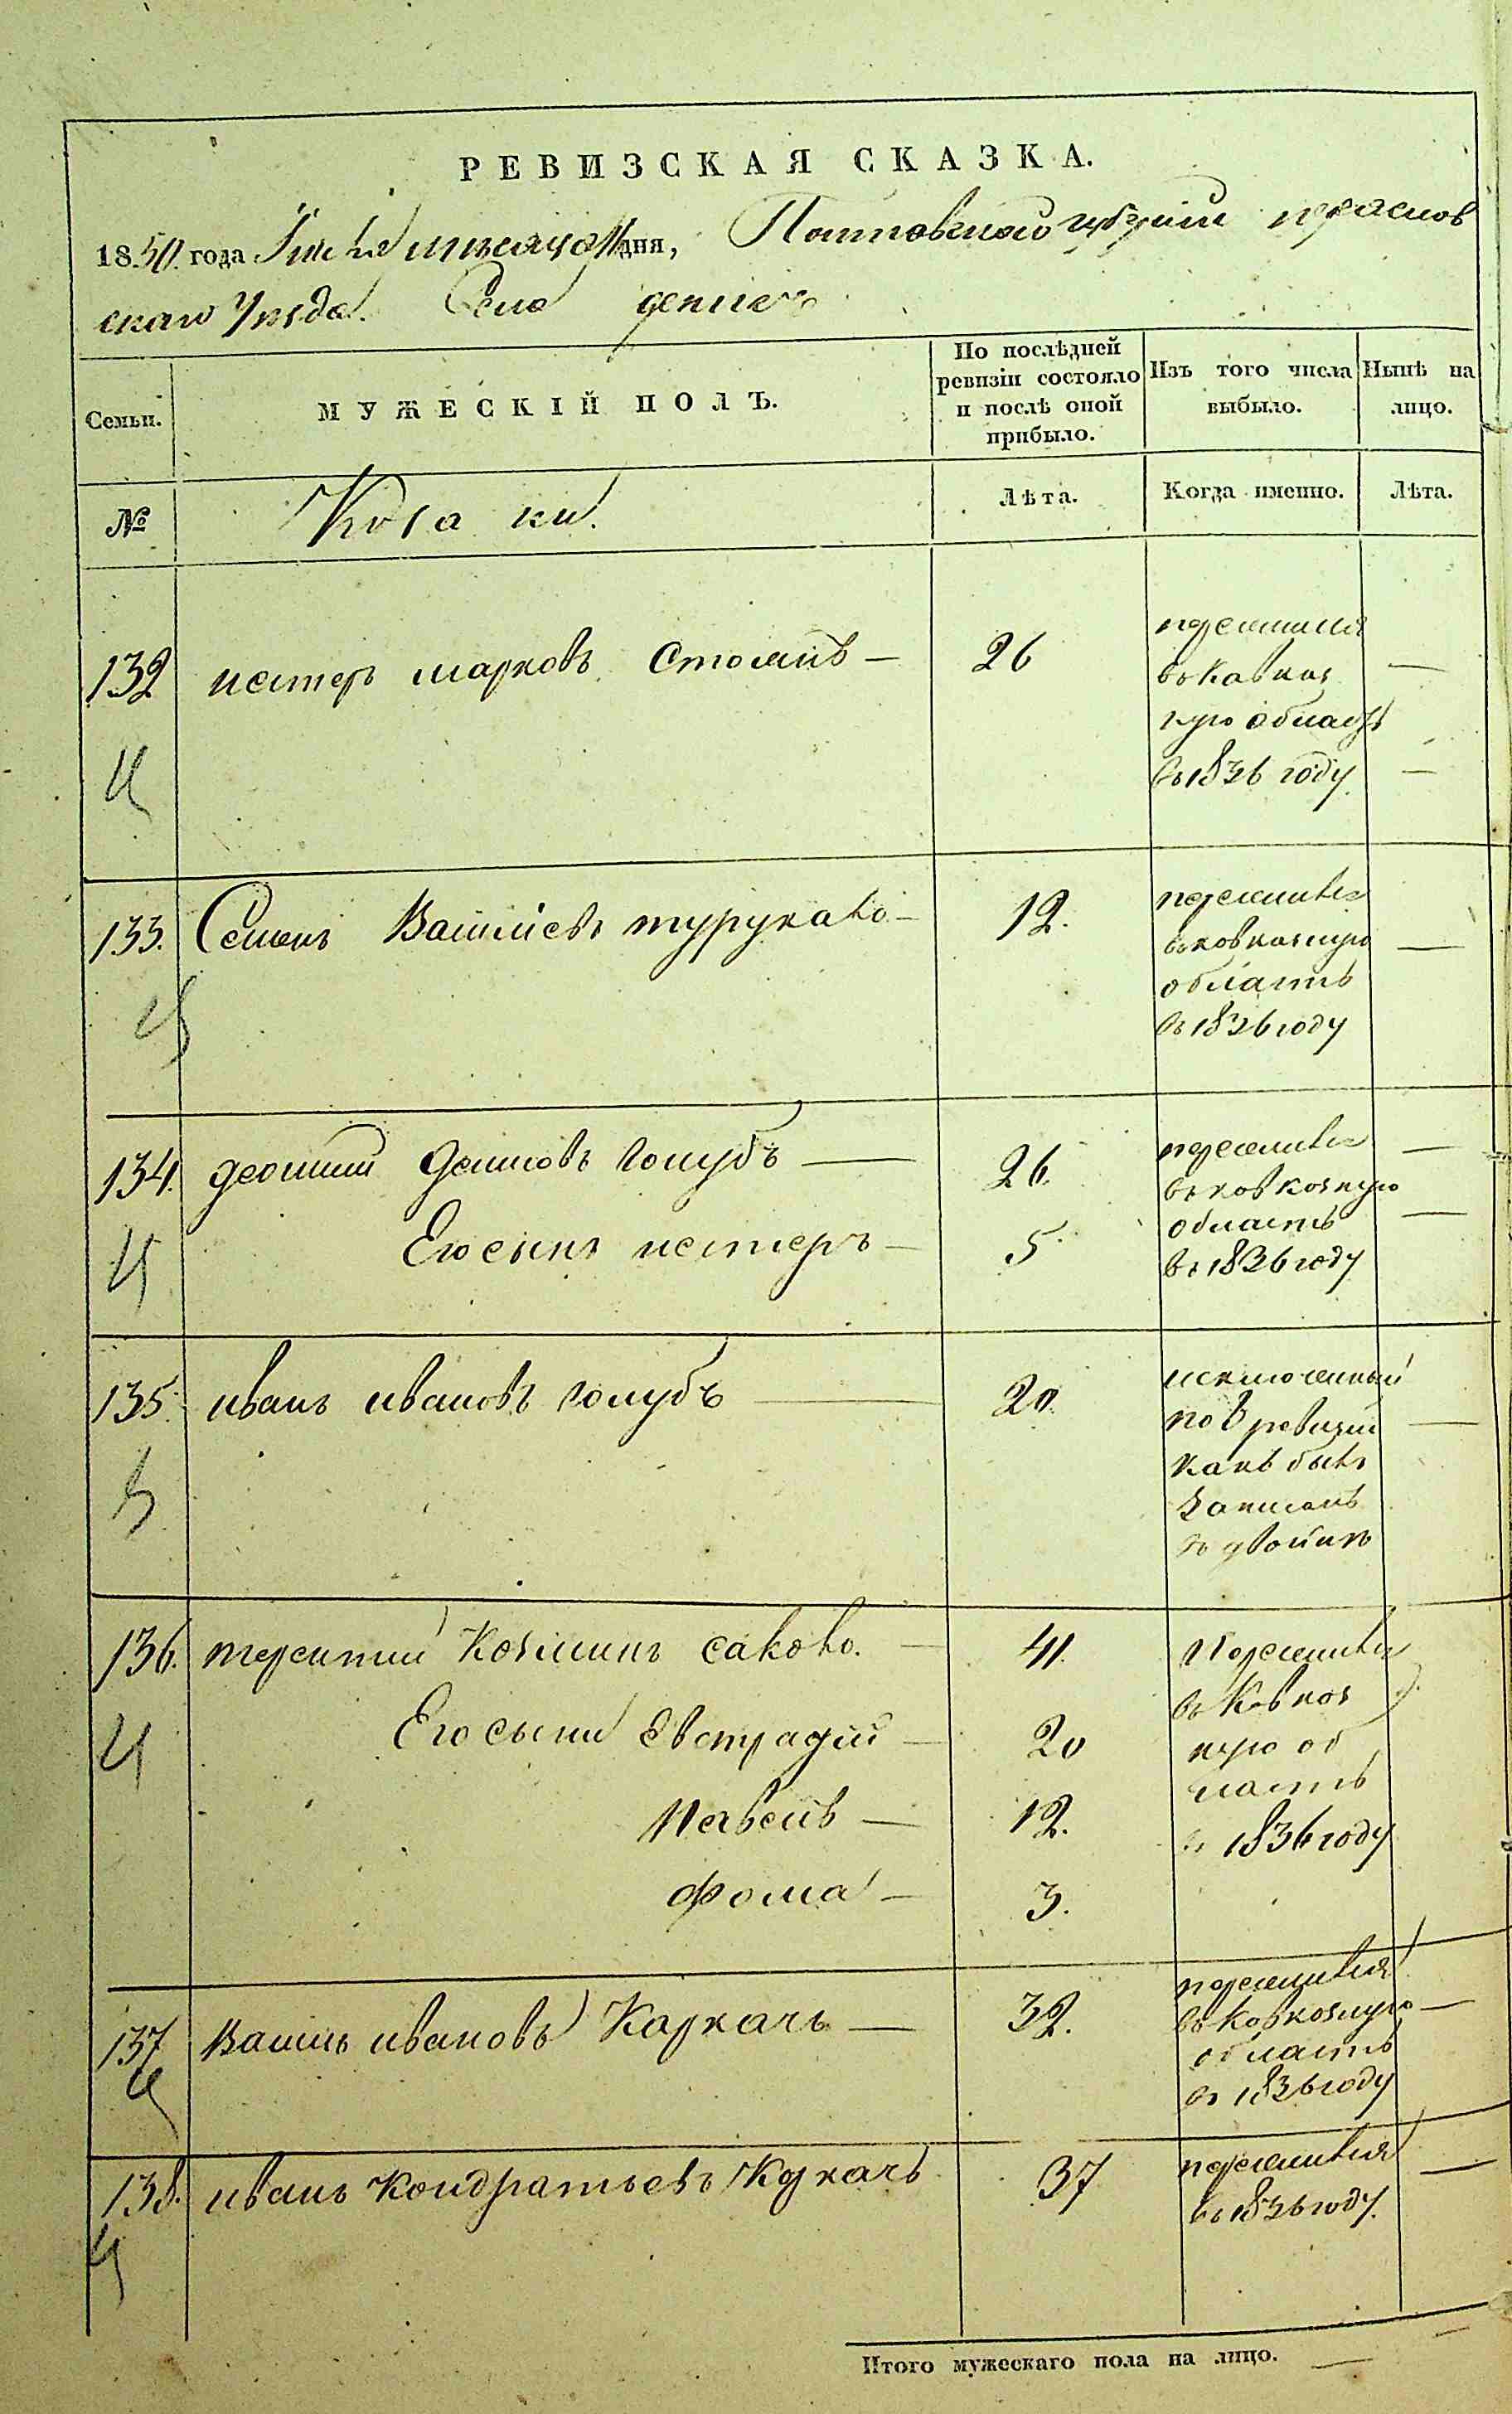 РЕВИЗСКАЯ СКАЗКА.
1850 года Июля месяца дня, Полтавской губерніи
скаго Уезда. Села
Семьи.
МУЖЕСКІЙ ПОЛЪ.
По послѣдней ревизіи состояло и послѣ оной прибыло.
Изъ того числа выбыло.
Нынѣ на лицо.
№
Козаки.
Лѣта.
Когда именно.
Лѣта.
132 нестеръ марковъ 26
въ Кавказ
кую область
въ 1836 году
133. Семенъ Василіевъ 12.
переселився
въ кавказкую
область
въ 1836 году
134. голубъ 26.
Его сынъ нестеръ 5
переселився
въ кавказкую
область
въ 1836 году
135. иванъ ивановъ голубъ 20.
исключенный
по 8 ревизіи
какъ бывъ
записанъ
въ двойнѣ
136. терентий Козминъ 41.
Его сыни Евстрадій 20
Павелъ 12.
Фома 3.
Переселився
въ Кавказ
кую об
ласть
въ 1836 году
137 Василь ивановъ Каркачъ 32.
переселився
въ Кавказкую
область
въ 1836 году
138. иванъ Кондратьевъ 37
переселився
въ 1836 году.
Итого мужескаго пола на лицо.